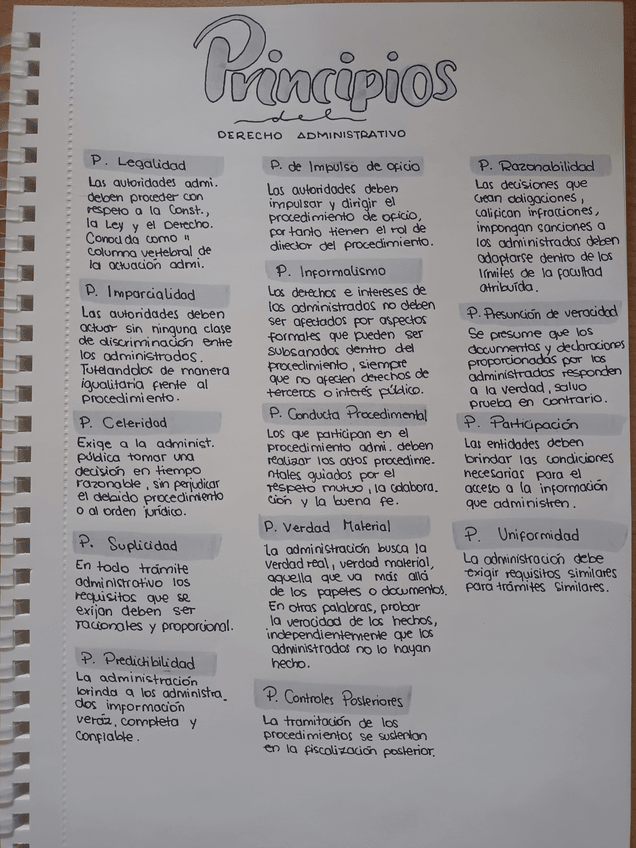 Principios
del
DERECHO ADMINISTRATIVO
P. Legalidad
Las autoridades admi.
deben proceder con
respeto a la Const.,
la Ley y el Derecho.
Conocida como "
columna vertebral de
la actuación admi.
P. Imparcialidad
Las autoridades deben
actuar sin ninguna clase
de discriminación entre
los administrados.
Tutelandolos de manera
igualitaria frente al
procedimiento.
P. Celeridad
Exige a la administ.
pública tomar una
decisión en tiempo
razonable, sin perjudicar
el debido procedimiento
o al orden jurídico.
P. Suplicidad
En todo trámite
administrativo los
requisitos que se
exijan deben ser
racionales y proporcional.
P. Predictibilidad
La administración
brinda a los administra_
dos imformación
veráz, completa y
confiable.
P. de Impulso de oficio
Las autoridades deben
impulsar y dirigir el
procedimiento de oficio,
por tanto tienen el rol de
director del procedimiento.
P. Informalismo
Los derechos e intereses de
los administrados no deben
ser afectados por aspectos
formales que pueden ser
subsanados dentro del
procedimiento, siempre
que no afecten derechos de
terceros o interés público.
P. Conducta Procedimental
Los que participan en el
procedimiento admi. deben
realizar los actos procedime.
ntales guiados por el
respeto mutuo, la colabora.
ción y la buena fe.
P. Verdad Material
La administración busca la
verdad real, verdad material,
aquella que va más allá
de los papeles o documentos.
En otras palabras, probar
la veracidad de los hechos,
independientemente que los
administrados no lo hayan
hecho.
P. Controles Posteriores
La tramitación de los
procedimientos se sustentan
en la fiscalización posterior.
P. Razonabilidad
Las decisiones que
crean obligaciones,
califican infracciones,
impongan sanciones a
los administrados deben
adoptarse dentro de los
límites de la facultad
atribuída.
P. Presunción de veracidad
Se presume que los
documentos y declaraciones
proporcionadas por los
administrados responden
a la verdad, salvo
prueba en contrario.
P. Participación
Las entidades deben
brindar las condiciones
necesarias para el
acceso a la información
que administren.
P. Uniformidad
La administración debe
exigir requisitos similares
para trámites similares.